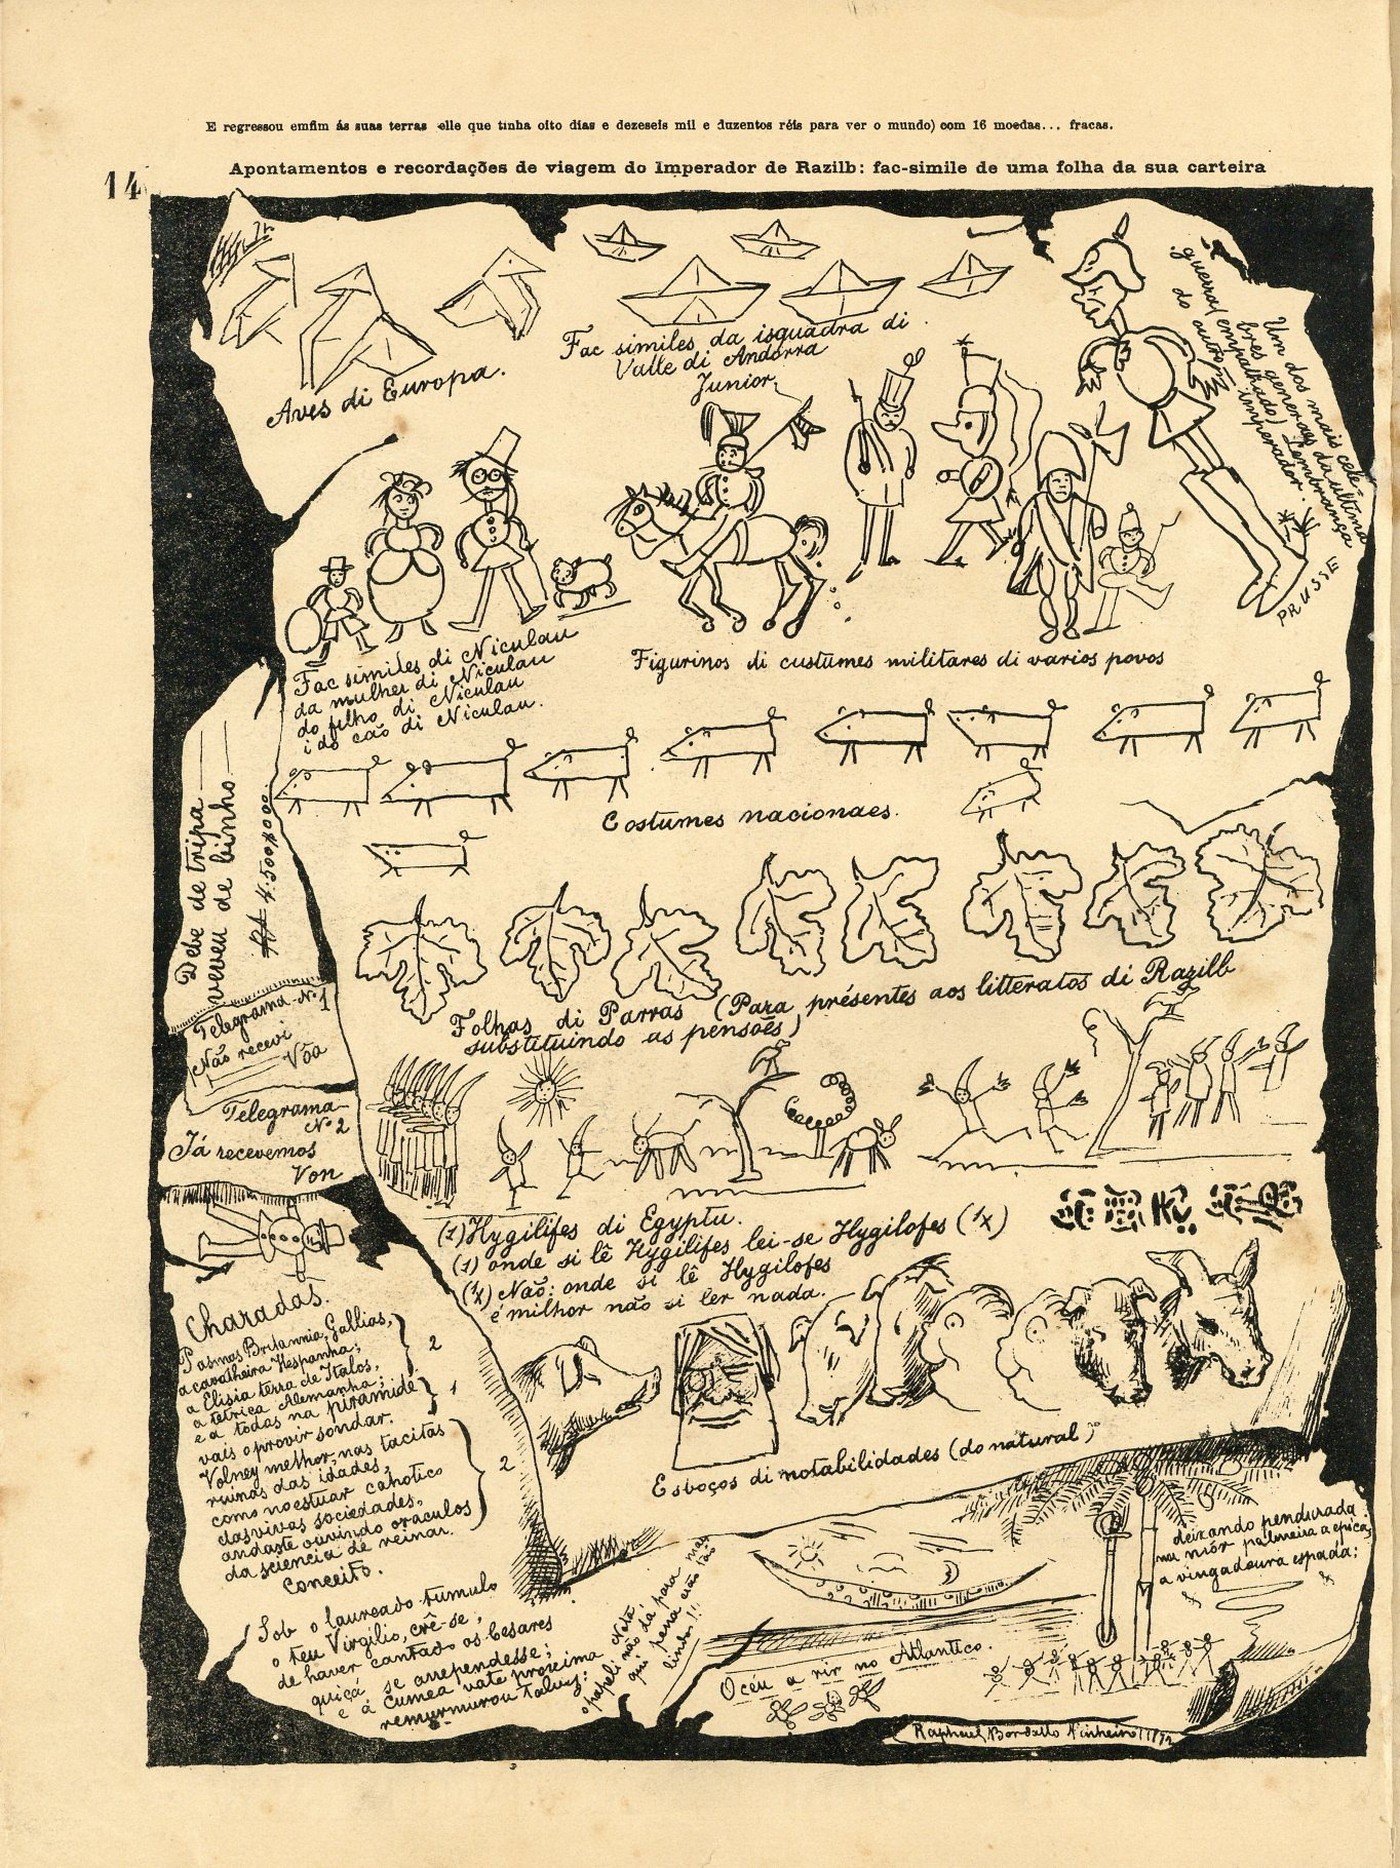 E regressou emfim ás suas terras elle que tinha oito dias e dezeseis mil e duzentos réis para ver o mundo) com 16 moedas... fracas.
Apontamentos e recordações de viagem do Imperador de Razilb: fac-simile de uma folha da sua carteira
14
Aves di Europa.
Fac similes da isquadra di
Valle di Andorra
Junior.
Um dos mais cele-
bres generaes da ultima
guerra (empalhado) Lembrança
do outro imperador.
PRUSSE
Fac similes di Niculau
da mulher di Niculau
do filho di Niculau
i do cão di Niculau.
Figurinos di custumes militares di varios povos
Costumes nacionaes.
Debe de tripa
veveu de binho
4:500$000
Folhas di Parras (Para présentes aos litteratos di Razilb
substituindo as pensões)
Telegrama Nº 1
Não recevi
Vôa
Telegrama
Nº 2
Já recevemos
Von
(1) Hygilifes di Egyptu.
(1) onde si lê Hygilifes lei-se Hygilofes (1x)
(1x) Não: onde si lê Hygilofes
é milhor não si ler nada.
Charadas.
Pasmas Britannia, Gallias,
a cavalheira Hespanha,
a Elisia terra de Italos,
a tétrica Alemanha;
2
e a todas na piramide
vais o provir sondar.
1
Volney melhor, nas tacitas
ruinas das idades,
como no estuar cahotico
das vivas sociedades,
andaste ouvindo oraculos
da sciencia de reinar.
2
Conceito.
Sob o laureado tumulo
o teu Virgilio, crê-se,
de haver cantado os Cesares
quiçá se arrependesse;
e á Cumea vate proxima
remurmurou talvez:
Esboços di notabilidades (do natural)
Nota
o papeli não dá para mas
qui pena erão tão
lindo!!
deixando pendurada
na mór palmeira a epica,
a vingadoura espada;
O céu a rir no Atlantico.
Raphael Bordallo Pinheiro 1872